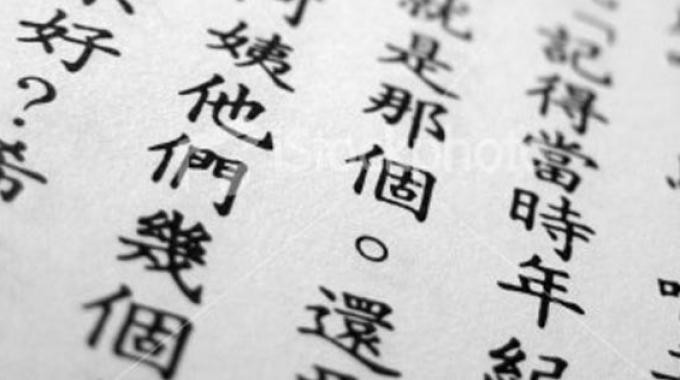 「記得當時年紀
就是那個。還
姨他們幾個
好?